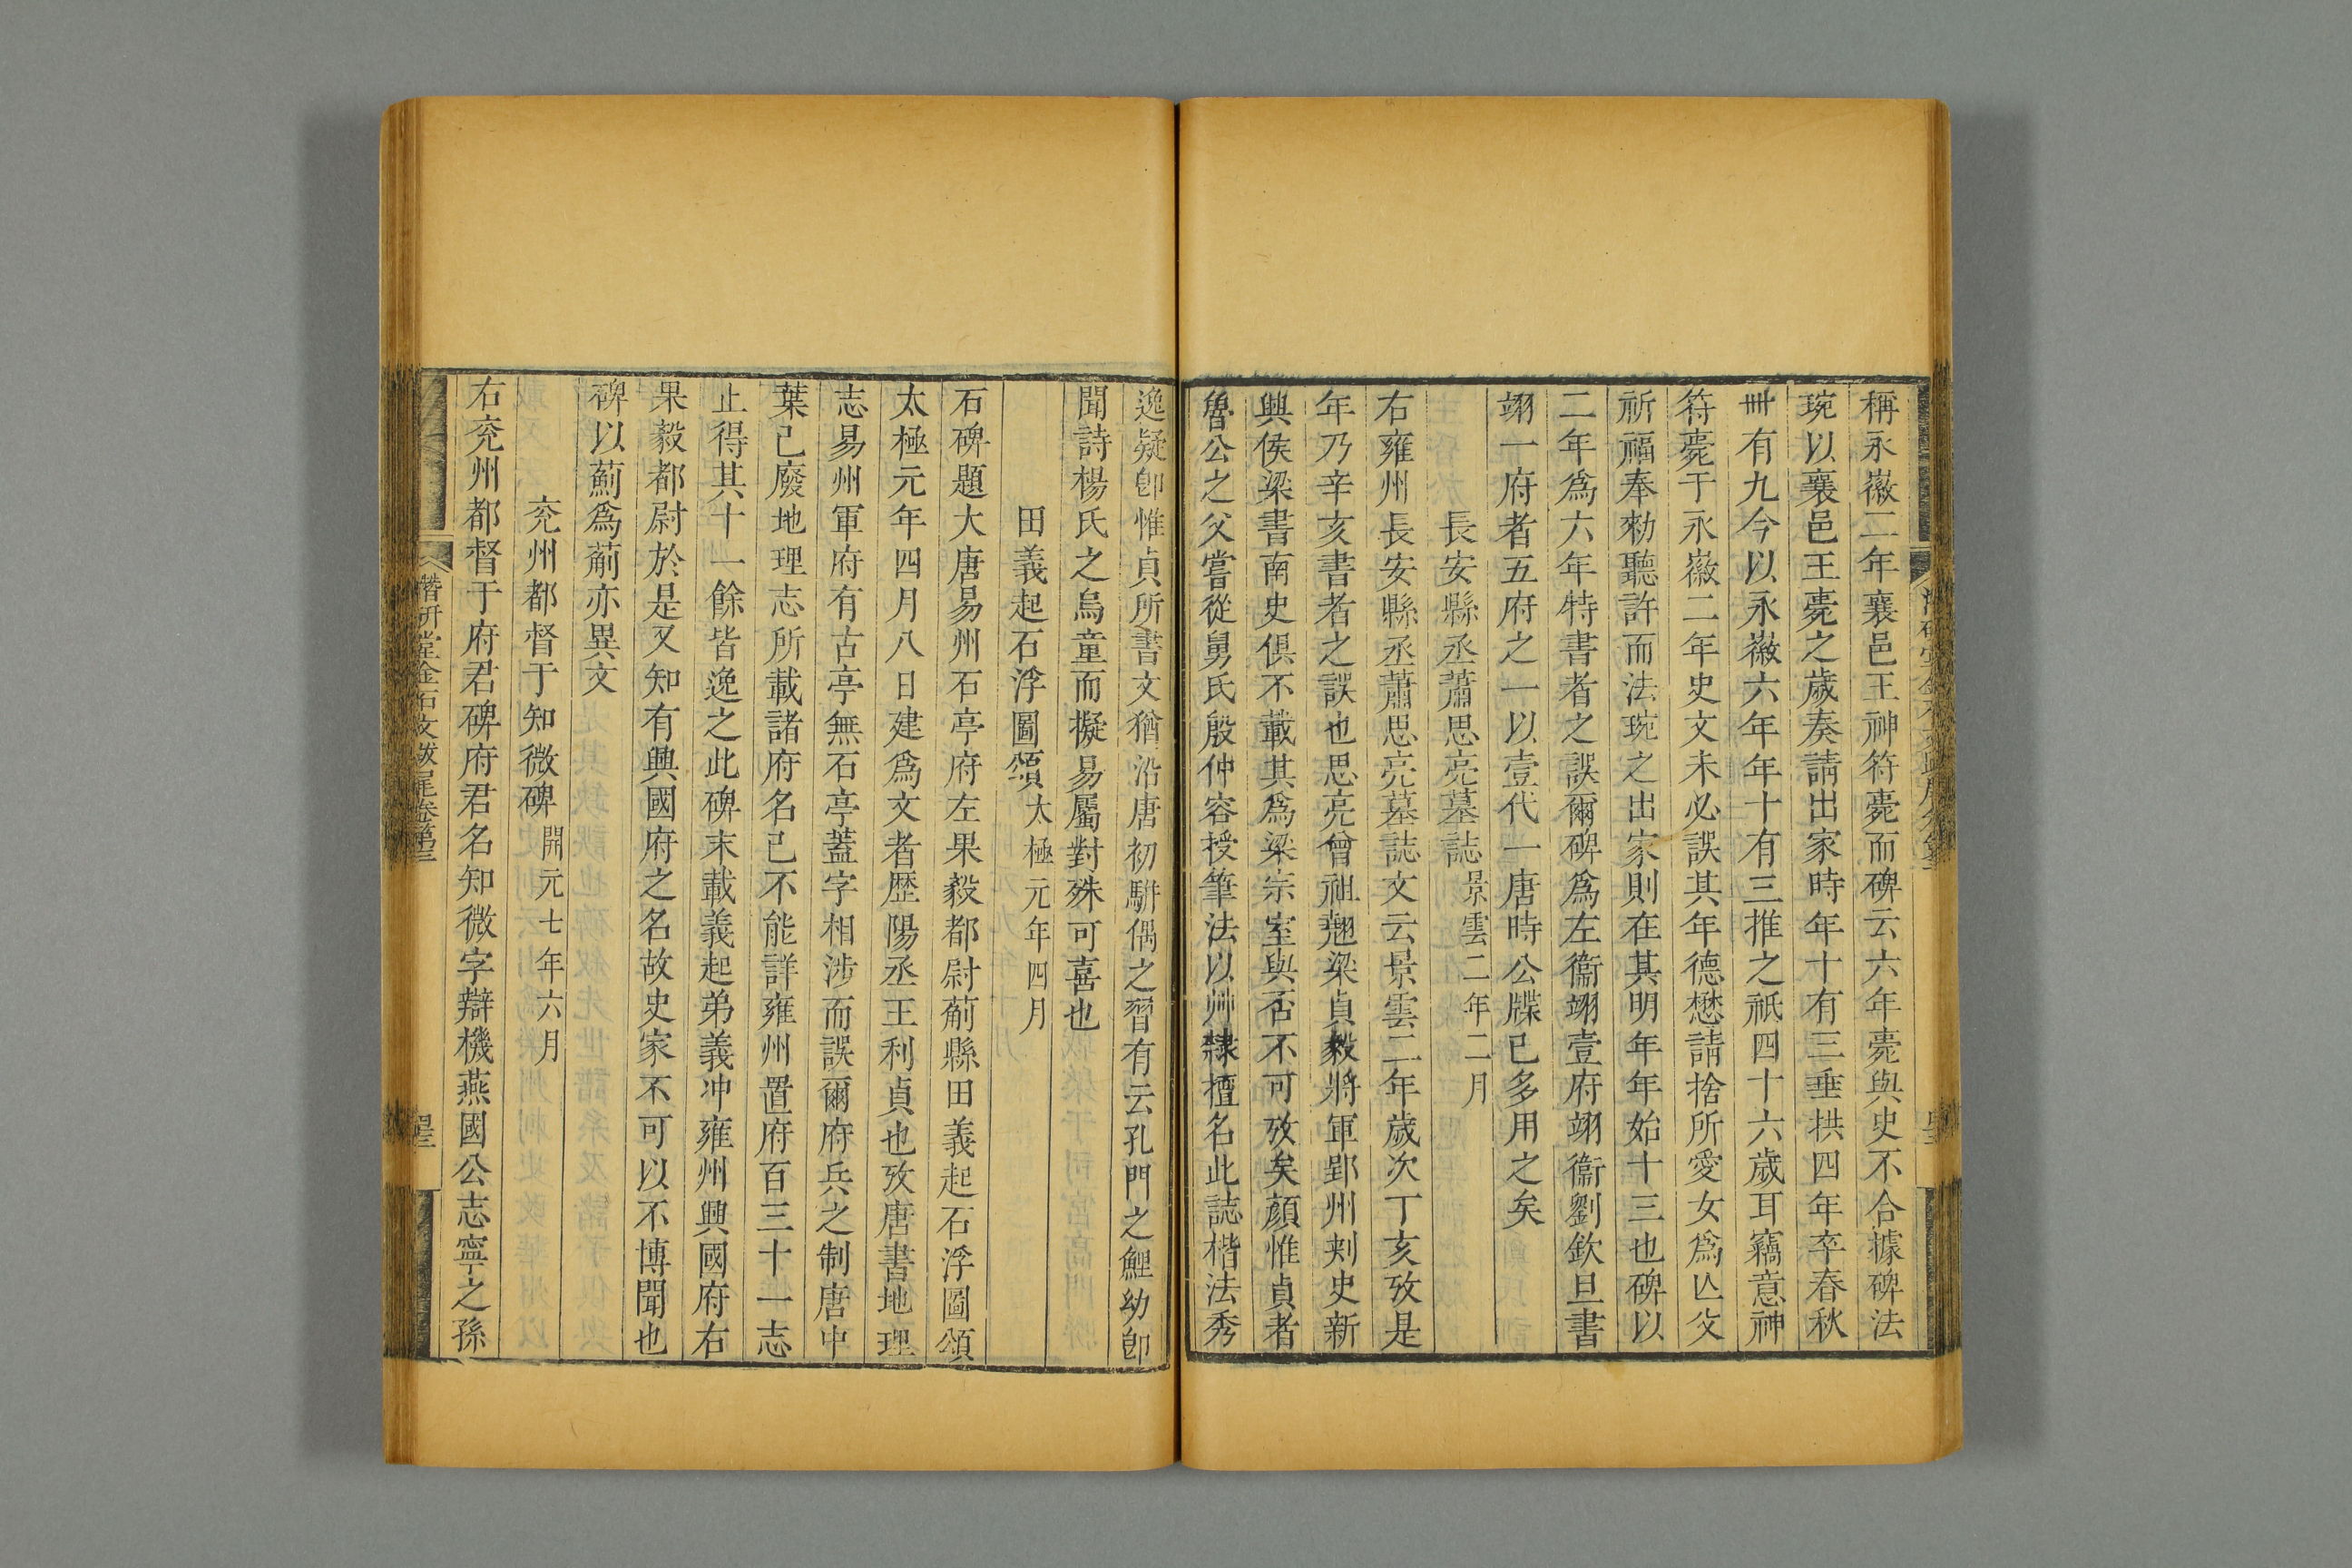 稱永徽二年襄邑王神符薨而碑云六年薨與史不合據碑法
琬以襄邑王薨之歲奏請出家時年十有三垂拱四年卒春秋
卌有九今以永徽六年年十有三推之祇四十六歲耳竊意神
符薨于永徽二年史文未必誤其年德懋請捨所愛女爲亾父
祈福奉勑聽許而法琬之出家則在其明年年始十三也碑以
二年爲六年特書者之誤爾碑爲左衞翊壹府翊衞劉欽旦書
翊一府者五府之一以壹代一唐時公牒已多用之矣
長安縣丞蕭思亮墓誌景雲二年二月
右雍州長安縣丞蕭思亮墓誌文云景雲二年歲次丁亥攷是
年乃辛亥書者之誤也思亮曾祖翹梁貞毅將軍郢州刺史新
興侯梁書南史俱不載其爲梁宗室與否不可攷矣顏惟貞者
魯公之父嘗從舅氏殷仲容授筆法以艸隸擅名此誌楷法秀
逸疑卽惟貞所書文猶沿唐初駢偶之習有云孔門之鯉幼卽
聞詩楊氏之烏童而擬易屬對殊可喜也
田義起石浮圖頌太極元年四月
石碑題大唐易州石亭府左果毅都尉葪縣田義起石浮圖頌
太極元年四月八日建爲文者歷陽丞王利貞也攷唐書地理
志易州軍府有古亭無石亭蓋字相涉而誤爾府兵之制唐中
葉已廢地理志所載諸府名已不能詳雍州置府百三十一志
止得其十一餘皆逸之此碑末載義起弟義冲雍州興國府右
果毅都尉於是又知有興國府之名故史家不可以不博聞也
碑以薊爲葪亦異文
兖州都督于知微碑開元七年六月
右兖州都督于府君碑府君名知微字辯機燕國公志寧之孫
潛研堂金石文跋尾卷第三